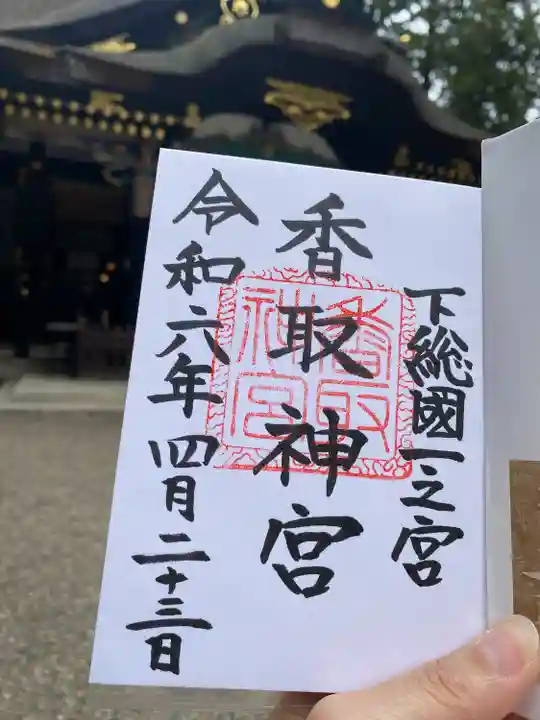 下総國一之宮
香取神宮
香取
神宮
令和六年四月二十三日